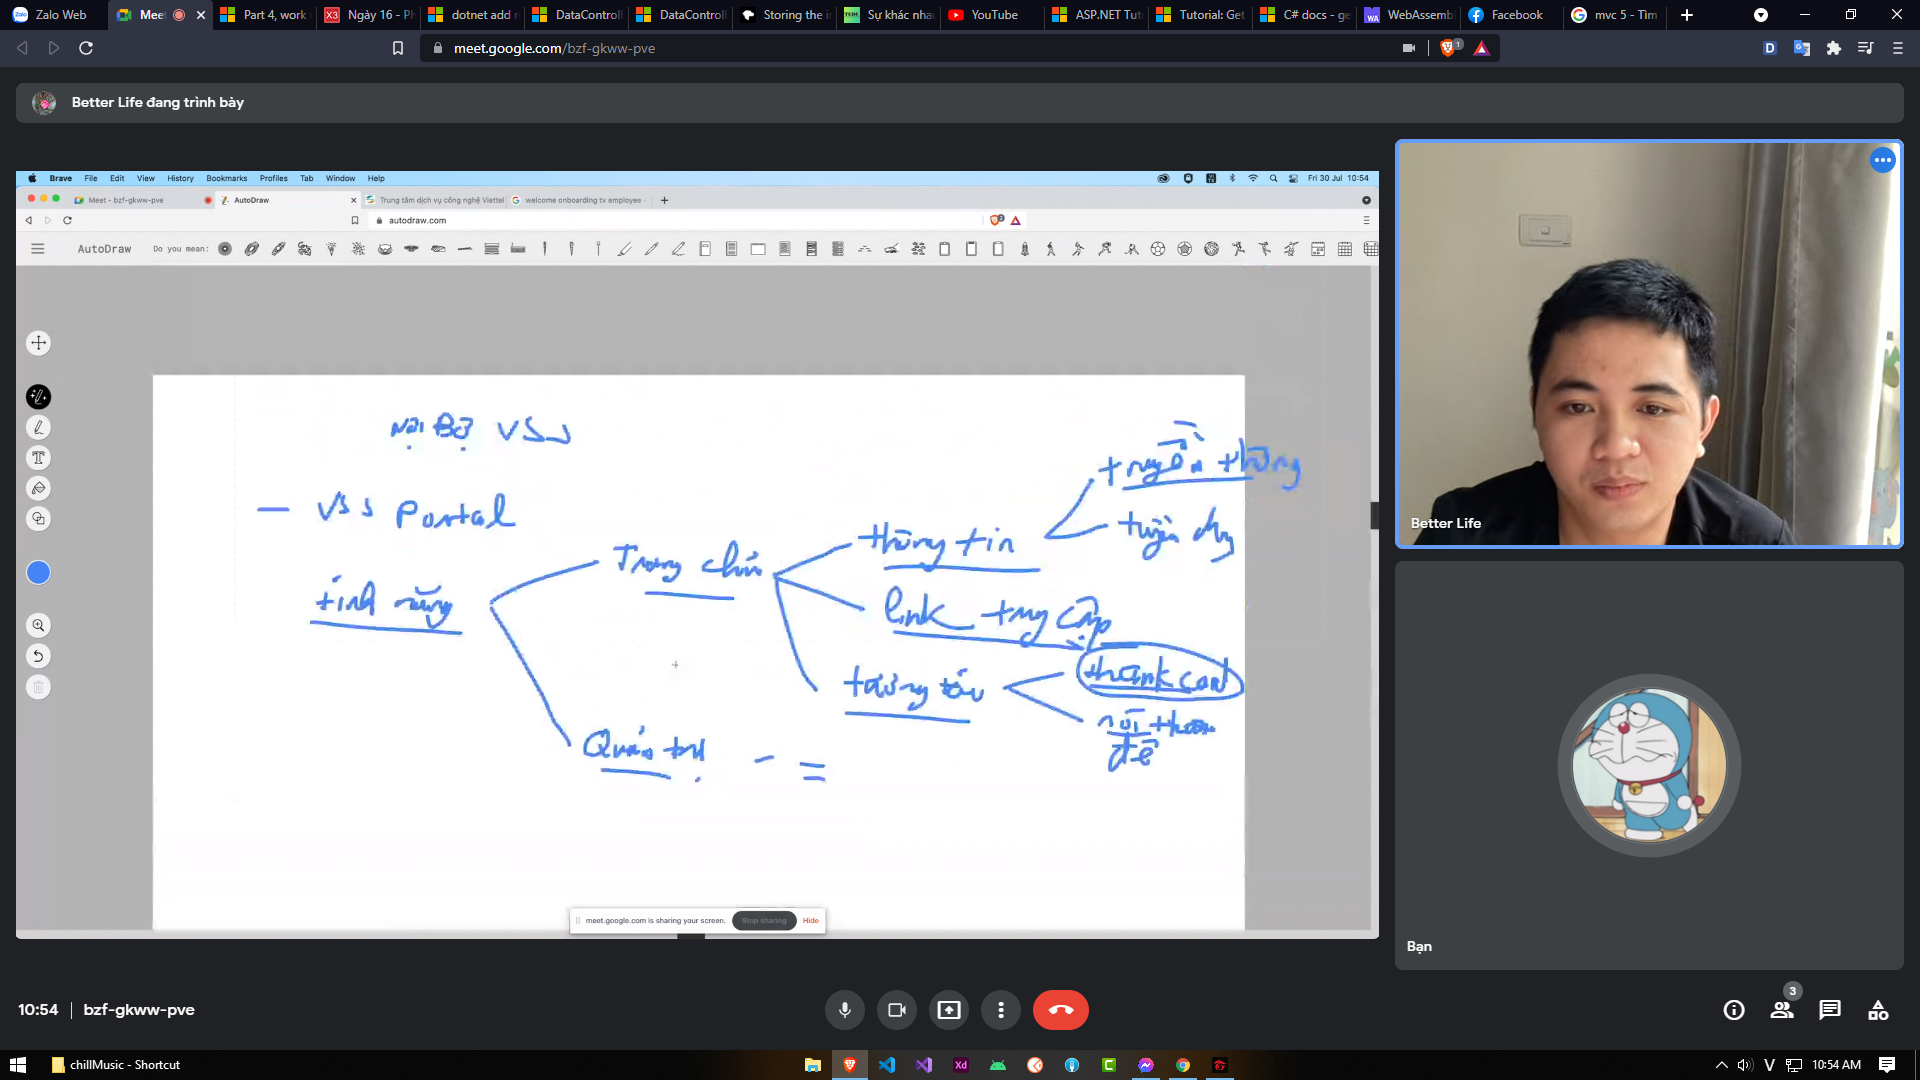 Zalo Web
Meet
Part 4, work
Ngày 16 - Ph
dotnet add
DataControll
DataControll
Storing the i
Sự khác nha
YouTube
ASP.NET Tut
Tutorial: Get
C# docs - ge
WebAssembl
Facebook
mvc 5 - Tìm
meet.google.com/bzf-gkww-pve
Better Life đang trình bày
Brave File Edit View History Bookmarks Profiles Tab Window Help
Fri 30 Jul 10:54
Meet - bzf-gkww-pve
AutoDraw
Trung tâm dịch vụ công nghệ Viettel
welcome onboarding tv employee -
autodraw.com
AutoDraw
Do you mean:
Nội Bộ VSS
VSS Portal
tính năng
Trang chủ
Quản trị
thông tin
truyền thông
tuyển dụng
link truy cập
tương tác
thank card
nói thêm
đề
meet.google.com is sharing your screen.
Stop sharing
Hide
Better Life
Bạn
10:54
bzf-gkww-pve
3
chillMusic - Shortcut
10:54 AM